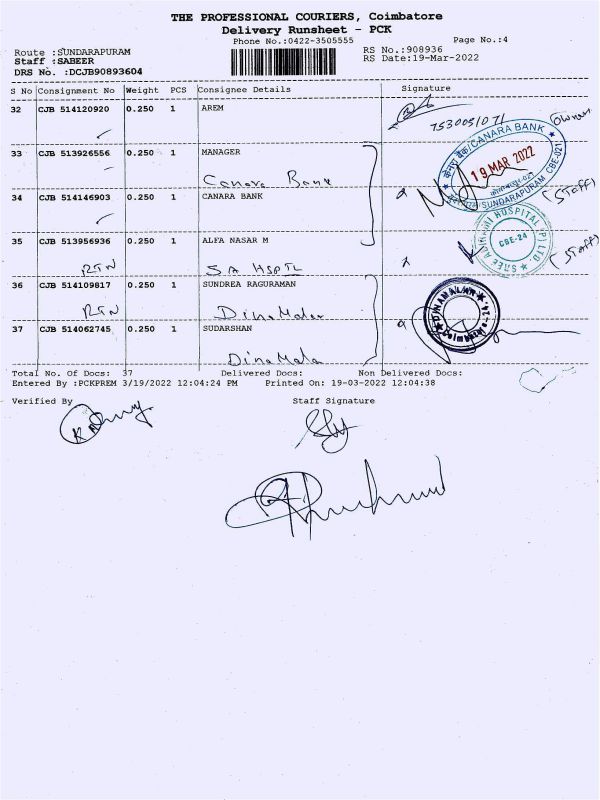 THE PROFESSIONAL COURIERS, Coimbatore
Delivery Runsheet - PCK
Phone No.:0422-3505555 Page No.:4
Route :SUNDARAPURAM RS No.:908936
Staff :SABEER RS Date:19-Mar-2022
DRS No. :DCJB90893604
S No Consignment No Weight PCS Consignee Details Signature
32 CJB 514120920 0.250 1 AREM
7530051071 Owner
33 CJB 513926556 0.250 1 MANAGER
Canara Bank
CANARA BANK
19 MAR 2022
SUNDARAPURAM CBE-021
(STAFF)
34 CJB 514146903 0.250 1 CANARA BANK
35 CJB 513956936 0.250 1 ALFA NASAR M
RTN SA HSPTL
HOSPITAL (P) LTD
CBE-24
(STAFF)
36 CJB 514109817 0.250 1 SUNDREA RAGURAMAN
RTN Dinamalar
DINAMALAR
Coimbatore-24.
37 CJB 514062745 0.250 1 SUDARSHAN
Dinamala
Total No. Of Docs: 37 Delivered Docs: Non Delivered Docs:
Entered By :PCKPREM 3/19/2022 12:04:24 PM Printed On: 19-03-2022 12:04:38
Verified By Staff Signature